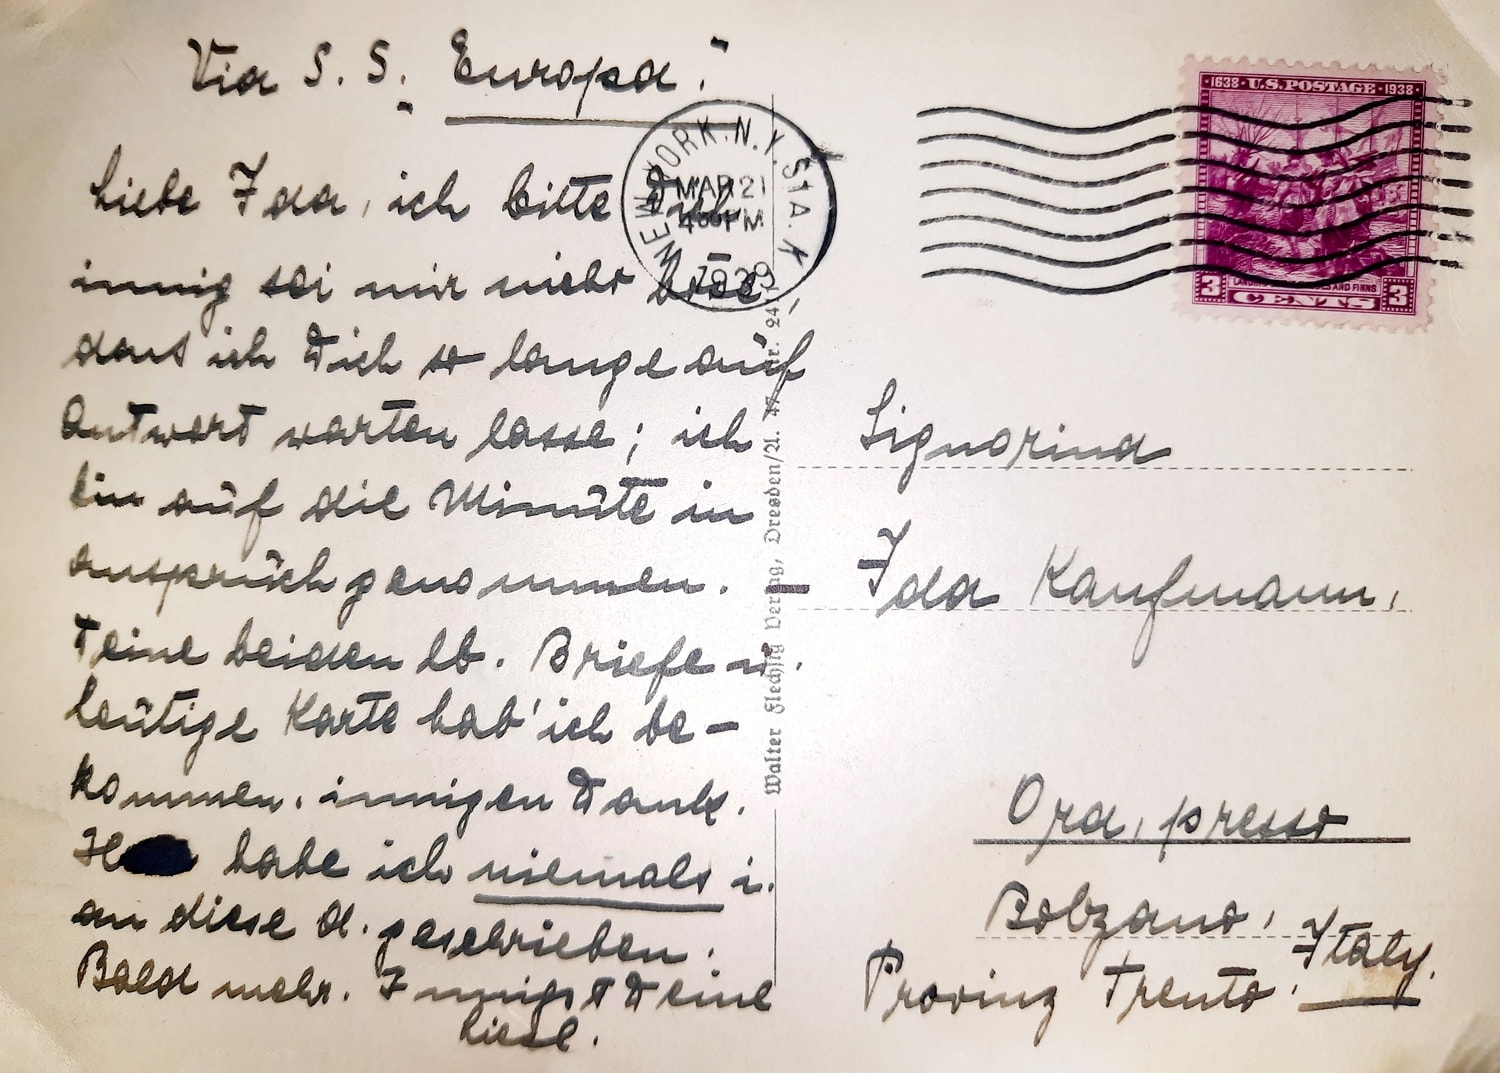 Via S. S. Europa.
Liebe Ida, ich bitte Dich
innig sei mir nicht böse
dass ich Dich so lange auf
Antwort warten lasse; ich
bin auf die Minute in
anspruch genommen. –
Deine beiden lb. Briefe u.
heutige Karte hab' ich be-
kommen. innigen Dank.
habe ich niemals i.
an diese A. geschrieben.
Bald mehr. Innigst Deine
Liesl.
NEW YORK, N.Y. STA. K
MAR 21
4 PM
1939
1638 · U.S. POSTAGE · 1938
LANDING OF THE SWEDES AND FINNS
3 CENTS 3
Signorina
Ida Kaufmann,
Ora, presso
Bolzano,
Italy.
Provinz Trento.
Walter Flechsig Verlag, Dresden/A. 47 Nr. 247